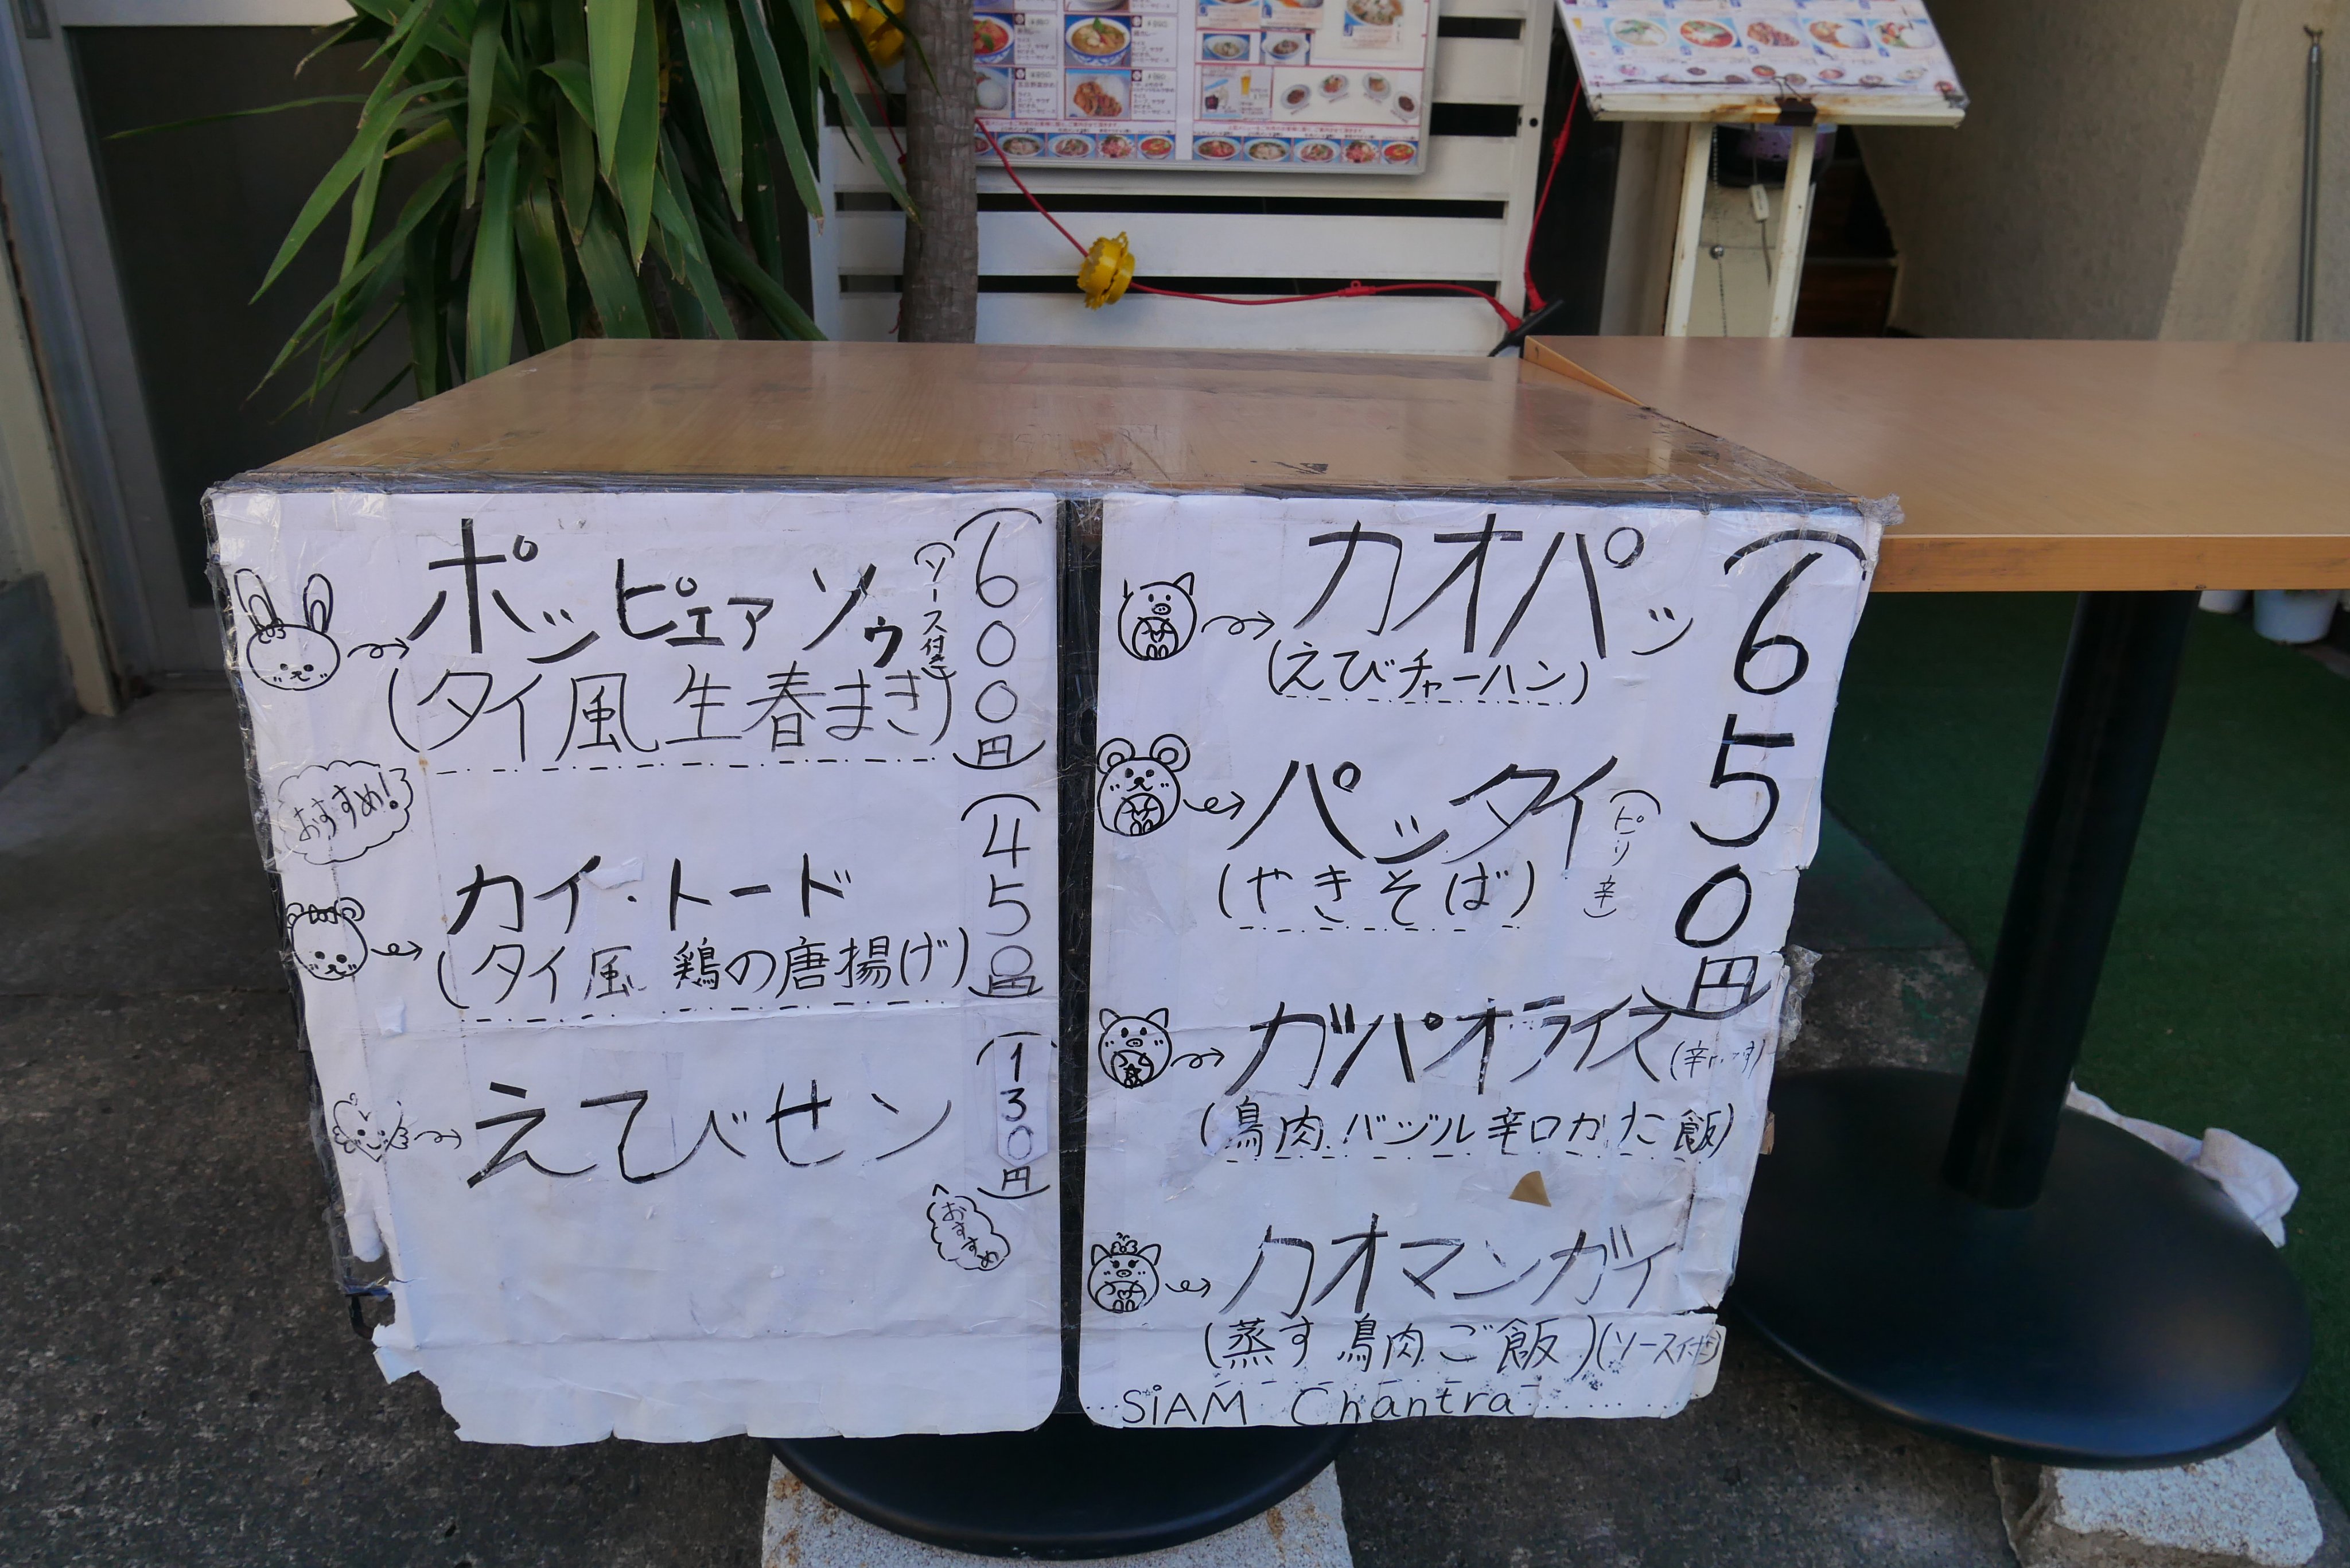 ポッピェアソゥ
(ソース付き)
(タイ風生春まき)
(600円)
おすすめ!
カイ・トード
(タイ風 鶏の唐揚げ)
(450円)
えびせン
(130円)
おすすめ
カオパッ
(えびチャーハン)
パッタイ
(ピリ辛)
(やきそば)
ガパオライス
(辛いです)
(鳥肉バジル辛口かた飯)
カオマンガイ
(蒸す鳥肉ご飯)(ソース付)
(650円)
SiAM Chantra